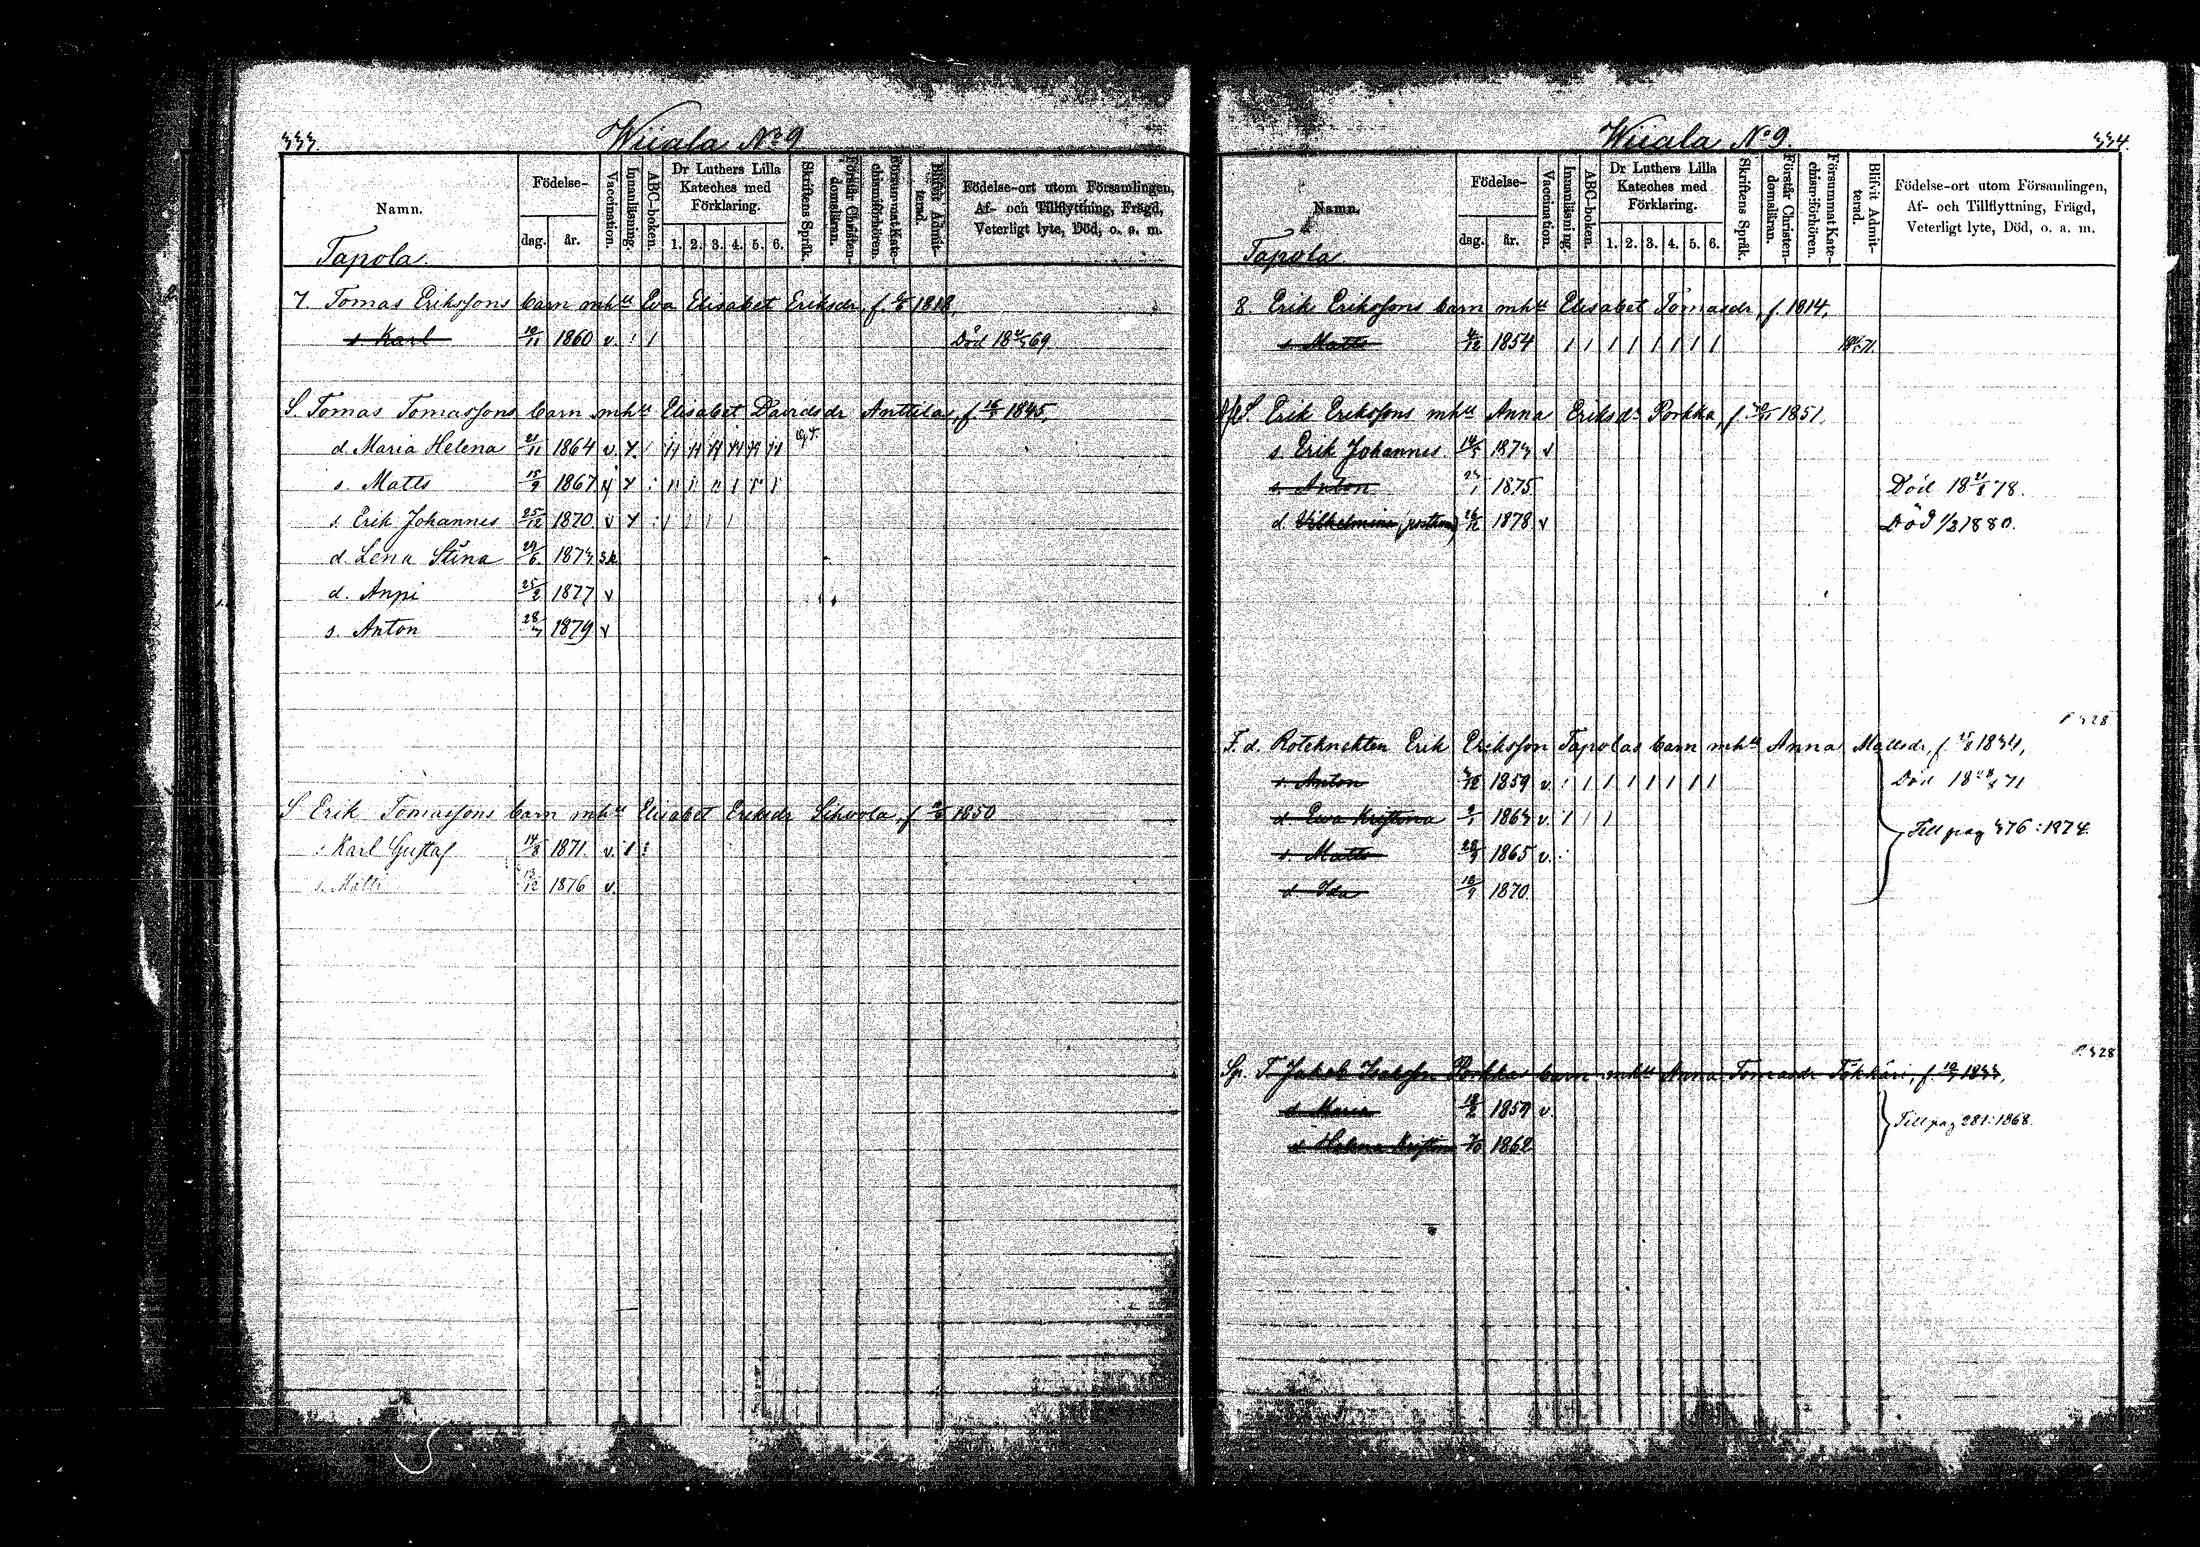 333.
Wiiala No 9
Namn.
Födelse-
dag.
år.
Vaccination.
Innanläsning.
ABC-boken.
Dr Luthers Lilla
Kateches med
Förklaring.
1. 2. 3. 4. 5. 6.
Skriftens Språk.
Förstår Christen-
domsläran.
Försummat Kate-
chismiförhören.
Blifvit Admit-
terad.
Födelse-ort utom Församlingen,
Af- och Tillflyttning, Frägd,
Veterligt lyte, Död, o. s. m.
Tapola.
7. Tomas Erikssons barn mhu Eva Elisabet Eriksdr, f. 1818,
s. Karl 10/11 1860 v. Död 69
S. Tomas Tomassons barn mhu Elisabet Davidsdr Anttila, f. 1845,
d. Maria Helena 21/11 1864 v.
s. Matts 15/9 1867
s. Erik Johannes 25/12 1870 v
d. Lena Stina 29/6 1873
d. Anni 25/2 1877 v
s. Anton 28/7 1879 v
S Erik Tomassons barn mhu Elisabet Eriksdr, f. 1850
s. Karl Gustaf 14/8 1871 v.
s. Matti 13/12 1876 v.
Wiiala No 9.
334.
Namn.
Födelse-
dag.
år.
Vaccination.
Innanläsning.
ABC-boken.
Dr Luthers Lilla
Kateches med
Förklaring.
1. 2. 3. 4. 5. 6.
Skriftens Språk.
Förstår Christen-
domsläran.
Försummat Kate-
chismiförhören.
Blifvit Admit-
terad.
Födelse-ort utom Församlingen,
Af- och Tillflyttning, Frägd,
Veterligt lyte, Död, o. s. m.
Tapola
8. Erik Erikssons barn mhu Elisabet Tomasdr, f. 1814,
s. Matts 1854
S. Erik Erikssons mhu Anna Eriksdr Porkka, f. 1851.
s. Erik Johannes 1873 v
s. Anton 1875 Död 18 78.
d. Vilhelmina 26/12 1878 v Död 1/3 1880.
P. 328
F. d. Roteknekten Erik Eriksson Tapolas barn mhu Anna Mattsdr, f. 1834,
s. Anton 1859 v. Död 18 71
d. Eva Kristina 1863 v.
Till pag 376: 1874.
s. Matts 1865 v.
d. Ida 18/9 1870.
P. 328
Sp. T. Jakob Porkkas barn mhu Anna Tomasdr, f. 1833,
d. Maria 18/2 1859 v.
Till pag 281: 1868.
d. Helena Kristina 1862